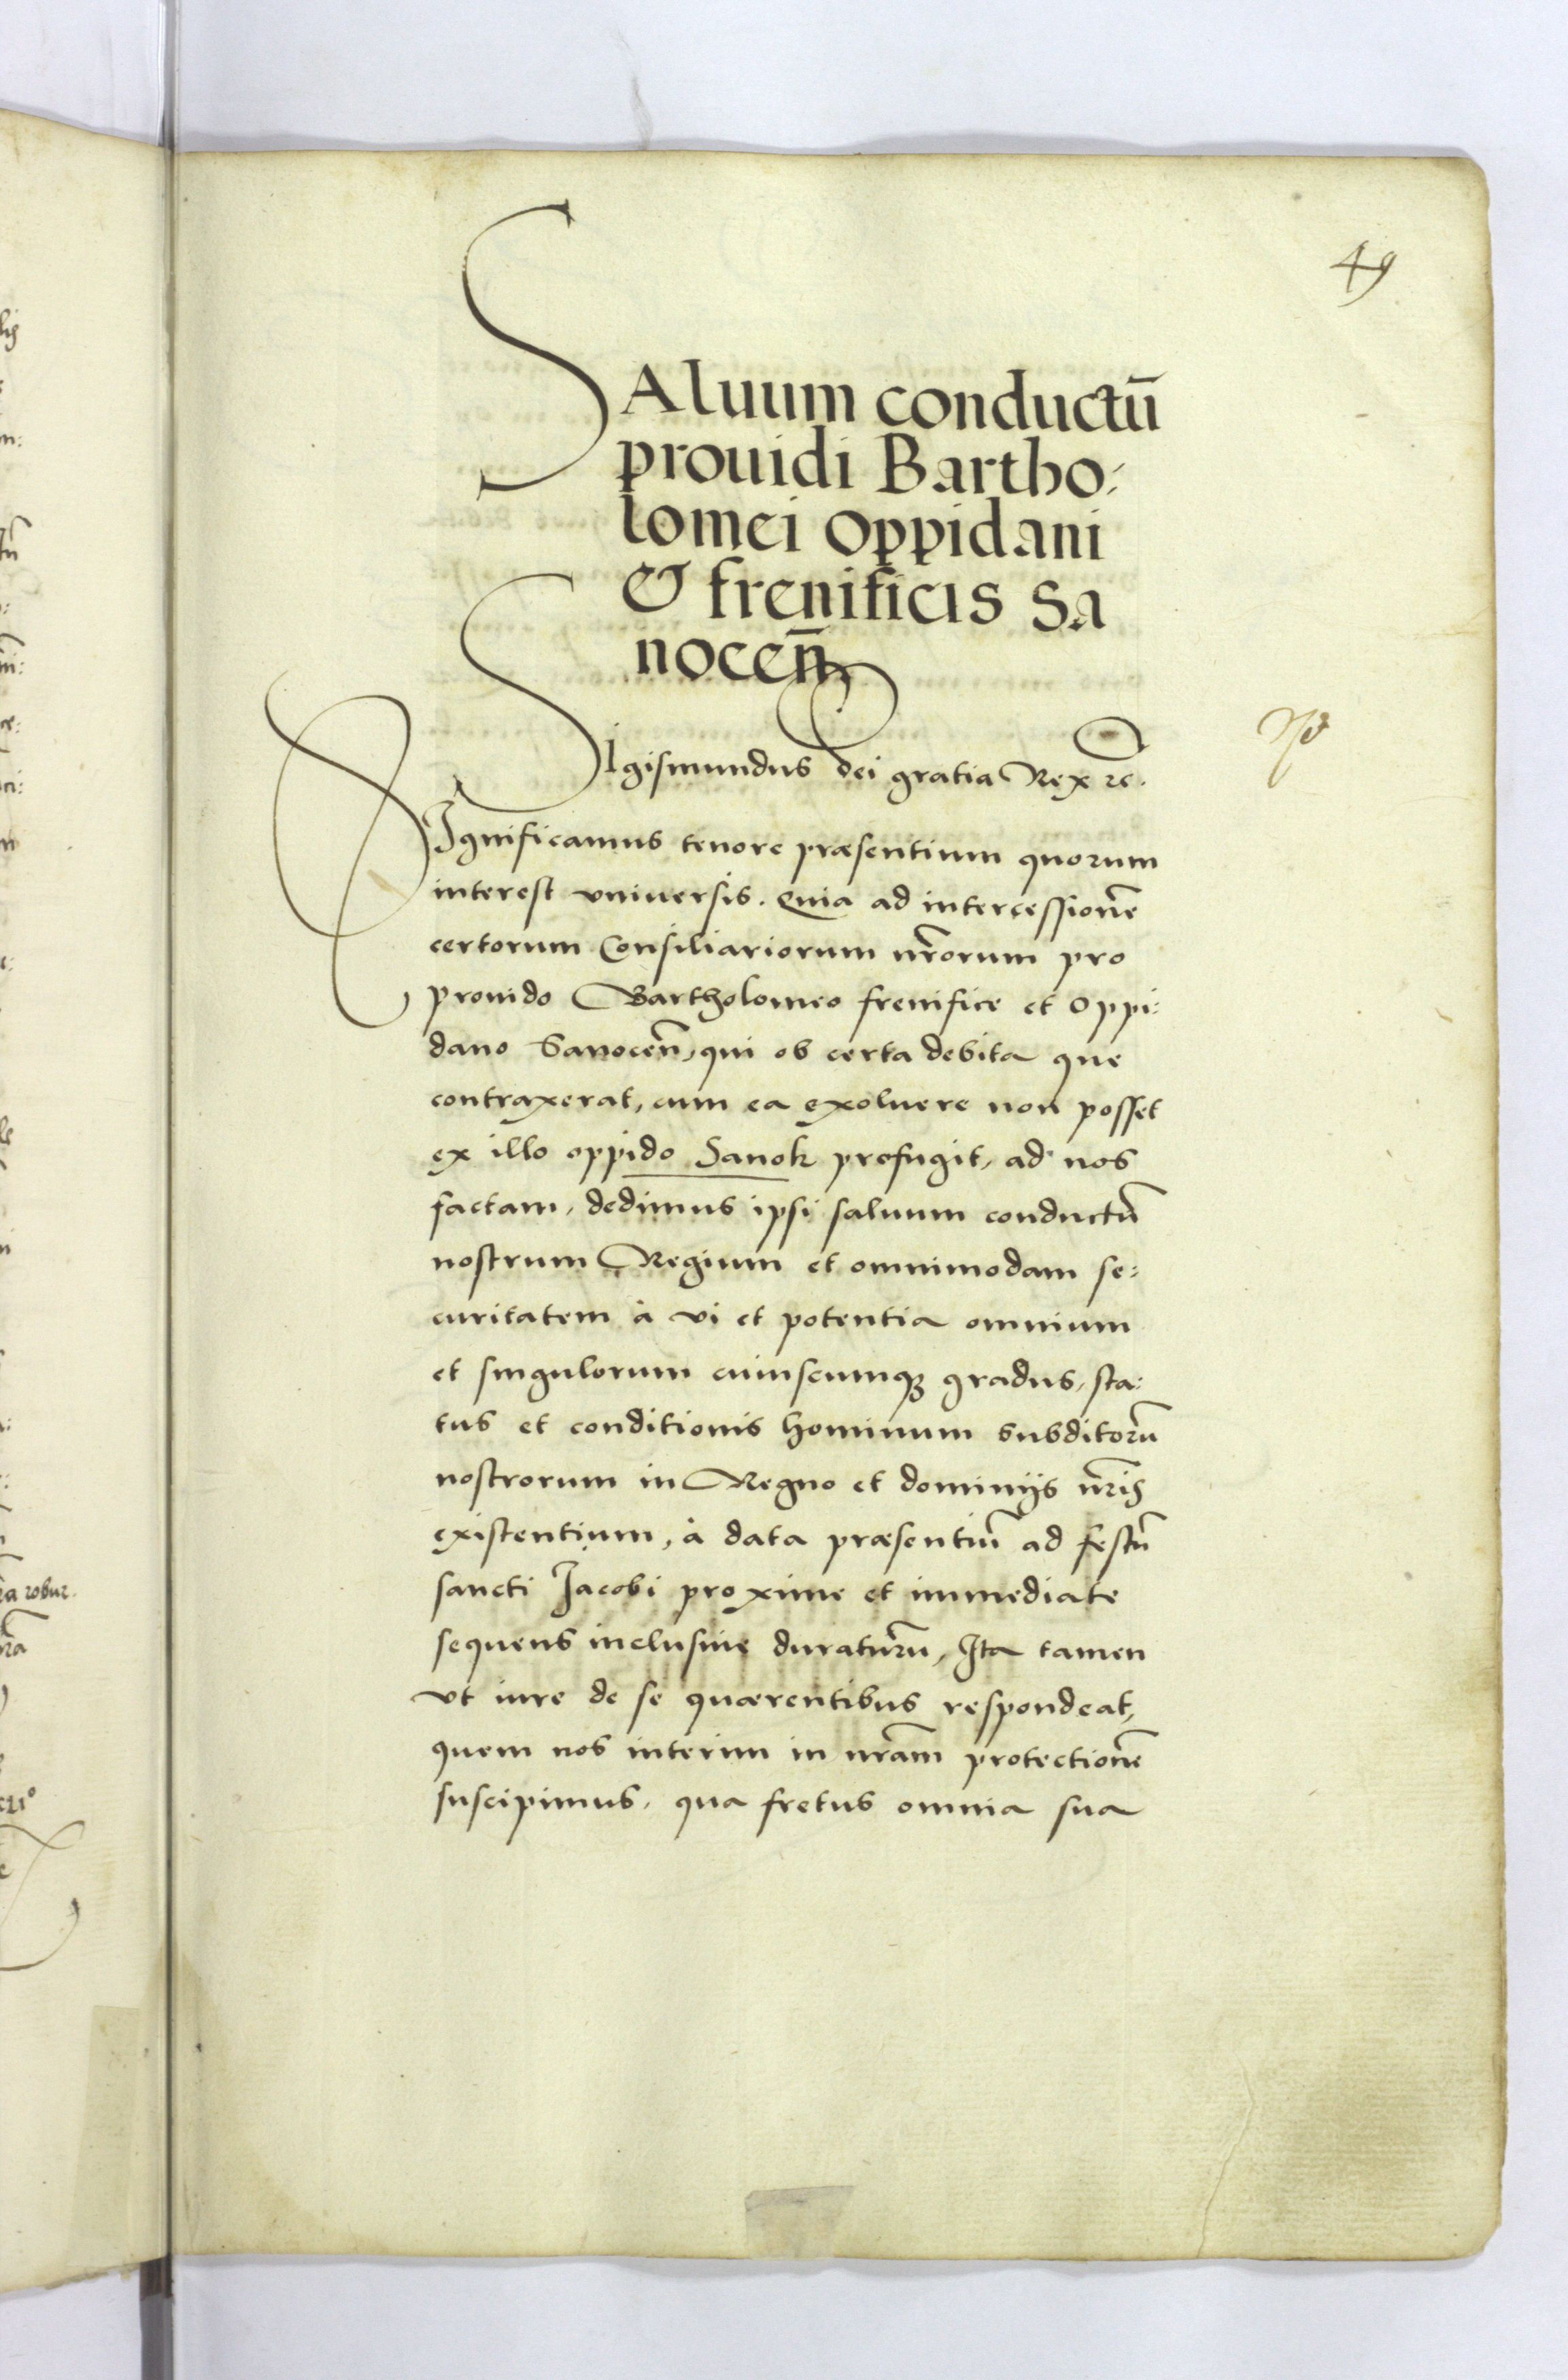 49
SAluum conductū
prouidi Bartho:
lomei oppidani
& frenificis Sa
nocen̄
SIgismundus Dei gratia Rex rc.
SIgnificamus tenore præsentium quorum
interest vniuersis. Quia ad intercessionē
certorum Consiliariorum nr̄orum pro
prouido Bartholomeo frenifice et oppi:
dano Sanocen̄, qui ob certa debita que
contraxerat, cum ea exoluere non posset
ex illo oppido Sanok profugit, ad nos
factam, dedimus ipsi saluum conductū
nostrum Regium et omnimodam se:
curitatem à vi et potentia omnium
et singulorum cuiuscumqȝ gradus, sta:
tus et conditionis hominum subditorū
nostrorum in Regno et dominijs nr̄is
existentium, à data præsentiū ad festū
sancti Jacobi proxime et immediate
sequens inclusiue duraturū, Ita tamen
vt iure de se quærentibus respondeat,
quem nos interim in nr̄am protectionē
suscipimus, qua fretus omnia sua